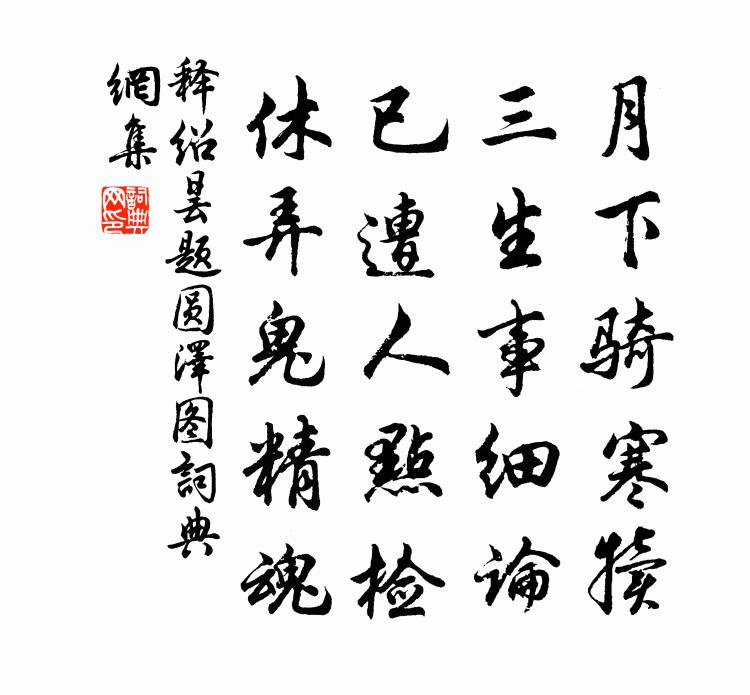 月下骑寒犊
三生事细论
已遭人點检
休弄鬼精魂
释绍昙题圆澤图詞典
網集
詞典
网印